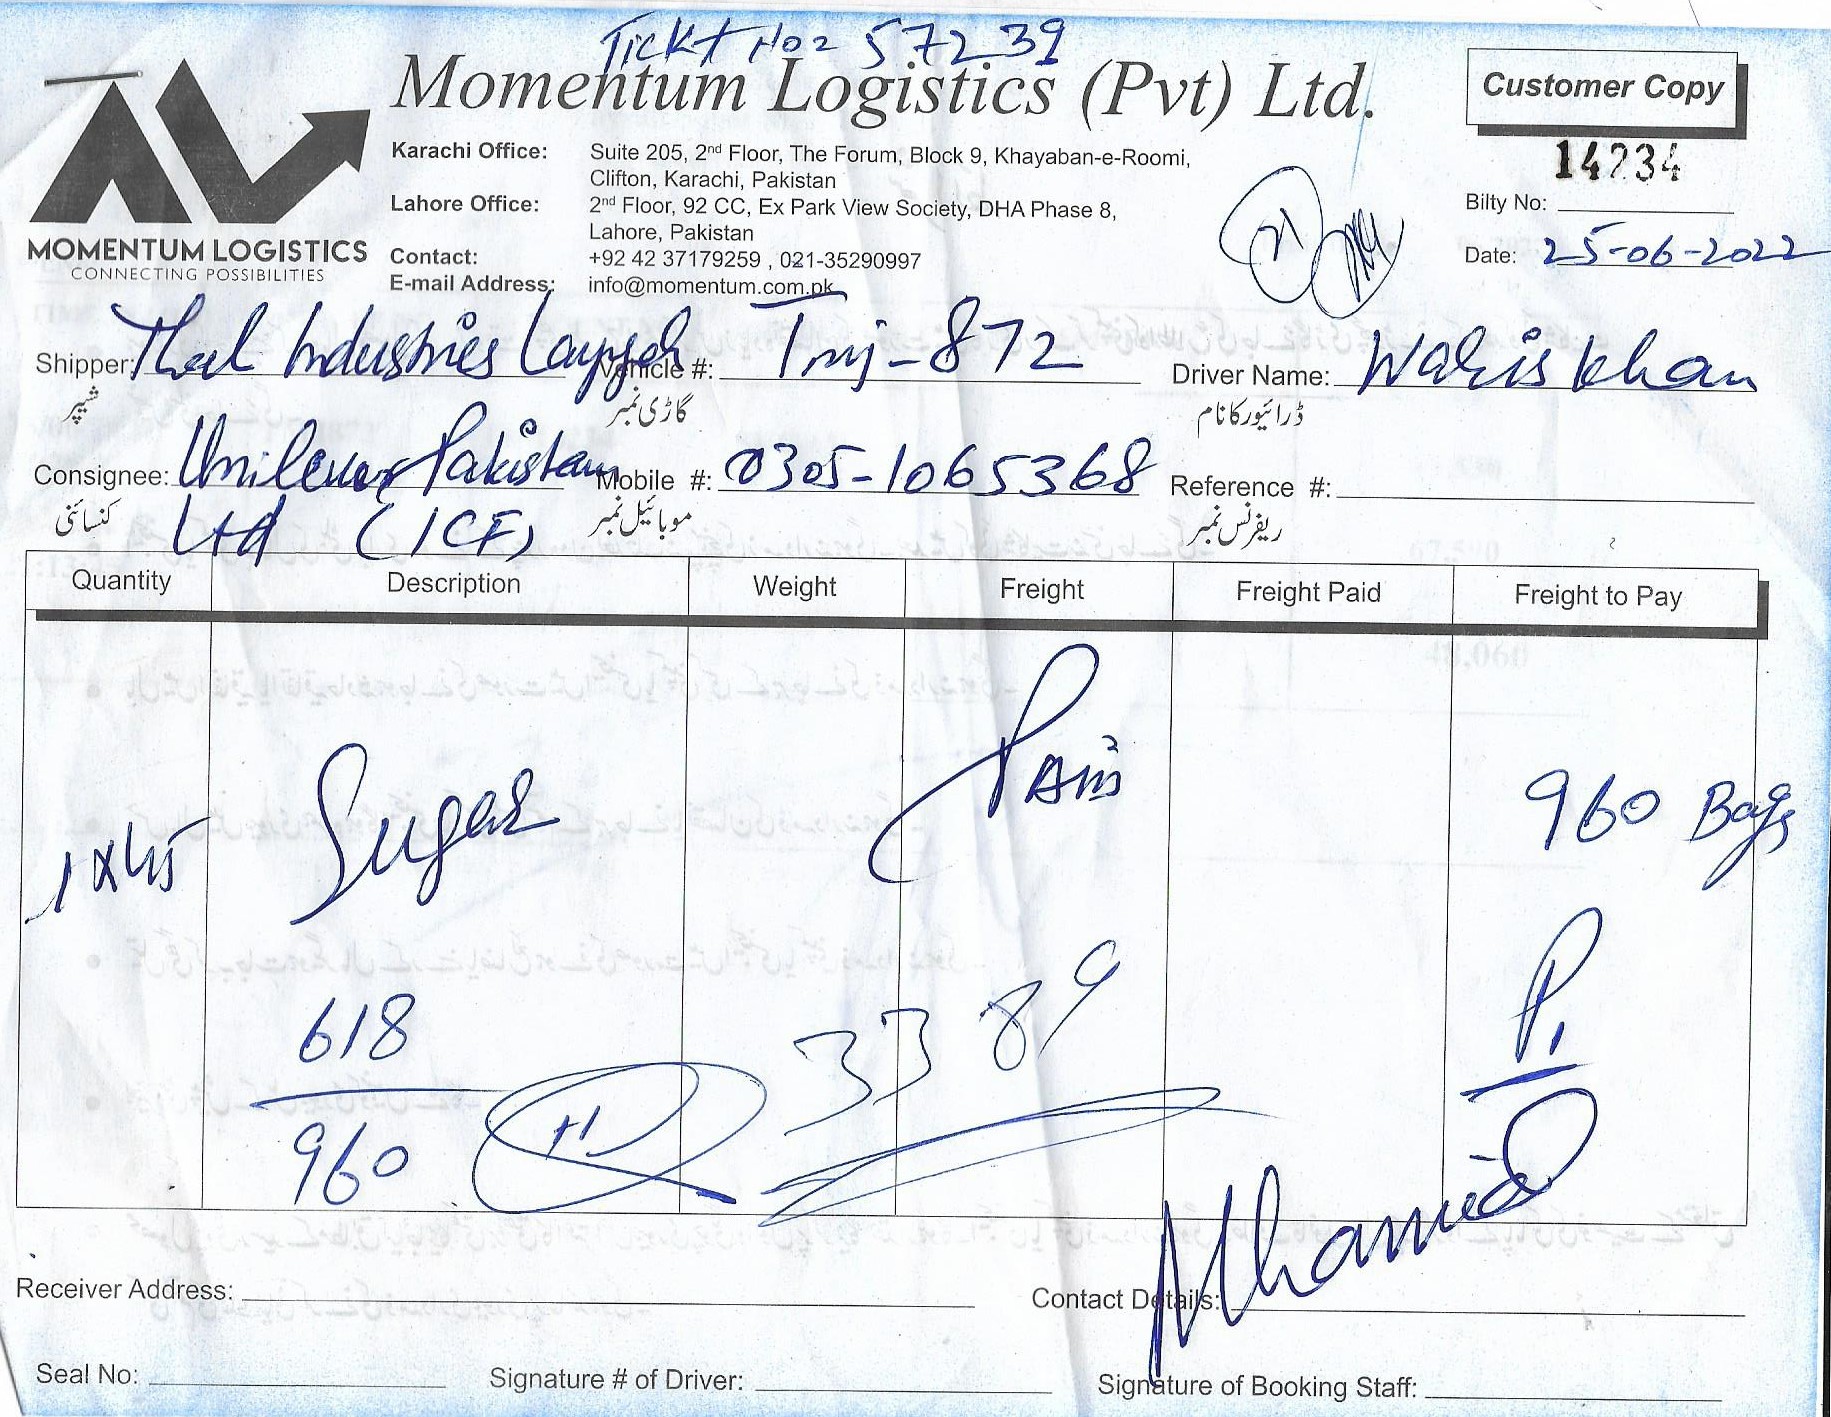 Tickt No= 57239
Momentum Logistics (Pvt) Ltd.
Customer Copy
14234
MOMENTUM LOGISTICS
CONNECTING POSSIBILITIES
Karachi Office: Suite 205, 2nd Floor, The Forum, Block 9, Khayaban-e-Roomi,
Clifton, Karachi, Pakistan
Lahore Office: 2nd Floor, 92 CC, Ex Park View Society, DHA Phase 8,
Lahore, Pakistan
Contact: +92 42 37179259 , 021-35290997
E-mail Address: info@momentum.com.pk
Bilty No:
Date: 25-06-2022
Shipper: Thal Industries Layyah Vehicle #: Tmj-872 Driver Name: Waris Khan
شیپر گاڑی نمبر ڈرائیور کا نام
Consignee: Unilever Pakistan Mobile #: 0305-1065368 Reference #:
Ltd (ICF)
کنسائنی موبائیل نمبر ریفرنس نمبر
Quantity Description Weight Freight Freight Paid Freight to Pay
1x45 Sugar Paid 960 Bags
618 3389
960
Receiver Address: Contact Details:
Seal No: Signature # of Driver: Signature of Booking Staff: